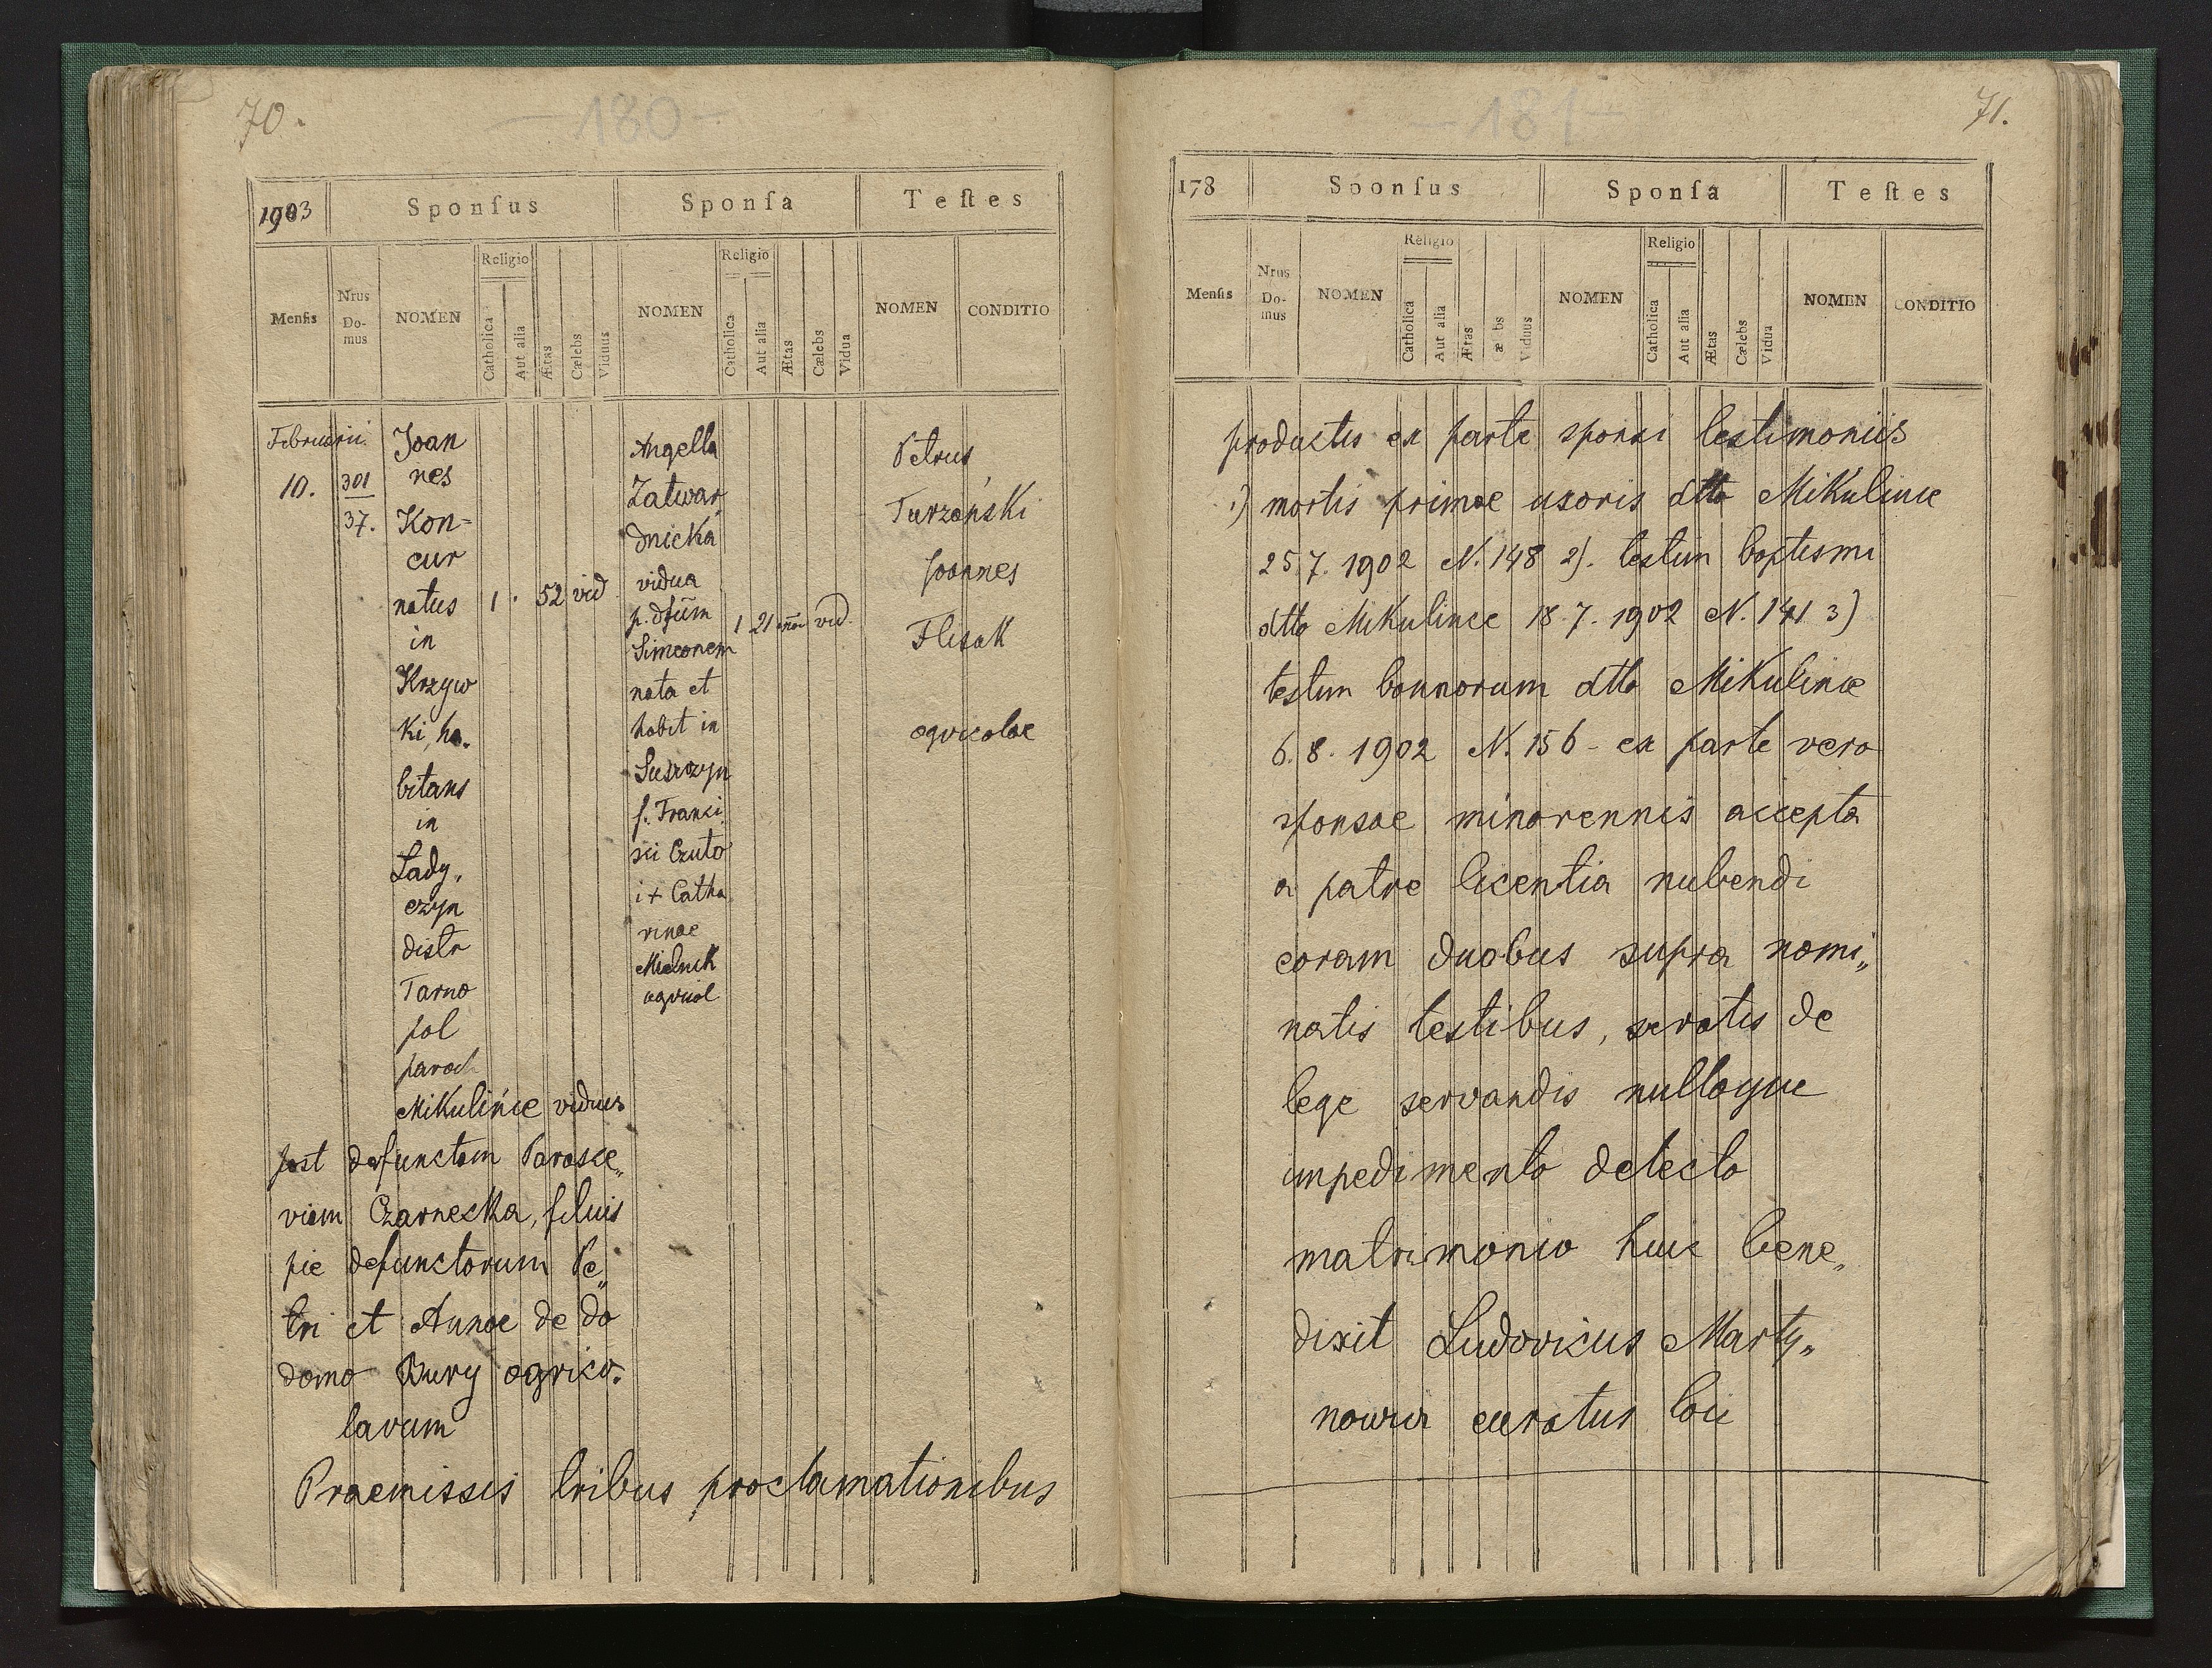 70.
— 180 —
1903
Sponſus
Sponſa
Teſtes
Menſis
Nrus Do-mus
NOMEN
Religio
Catholica
Aut alia
Ætas
Cælebs
Viduus
NOMEN
Religio
Catholica
Aut alia
Ætas
Cælebs
Vidua
NOMEN
CONDITIO
Februarii
10.
301
37.
Joan
nes
Kon-
cur
natus
in
Krzyw
ki, ha.
bitans
in
Lady,
czyn
distr
Tarno
pol
paroch
Mikulińce viduus
post defunctam Parasce„
viam Czarnecka, filius
pie defunctorum Pe„
tri et Annae de do
domo Bury agrico.
larum
1
52 vid
Angella
Zatwar
dnicka
vidua
p. dfūm
Simeonem
nata et
habit in
Suszczyn
f. Franci
sci Czuto
i + Catha
rinae
Mielnik
agricol
1 21 vid.
Petrus
Turzański
Joannes
Flisak
agricolae
Praemissis tribus proclamationibus
71.
— 181 —
178
Sponſus
Sponſa
Teſtes
Menſis
Nrus Do-mus
NOMEN
Religio
Catholica
Aut alia
Ætas
æ bs
Viduus
NOMEN
Religio
Catholica
Aut alia
Ætas
Cælebs
Vidua
NOMEN
CONDITIO
productis ex parte sponsi testimoniis
1) mortis primae uxoris dtto Mikulince
25 7. 1902 N. 148 2). testim baptismi
dtto Mikulince 18. 7. 1902 N. 141 3)
testim bannorum dtto Mikulince
6. 8. 1902 N. 156 - ex parte vero
sponsae minorennis accepta
a patre licentia nubendi
coram duobus supra nomi„
natis testibus, servatis de
lege servandis nulloque
impedimento detecto
matrimonio huic bene„
dixit Ludovicus Marty„
nowicz curatus loci